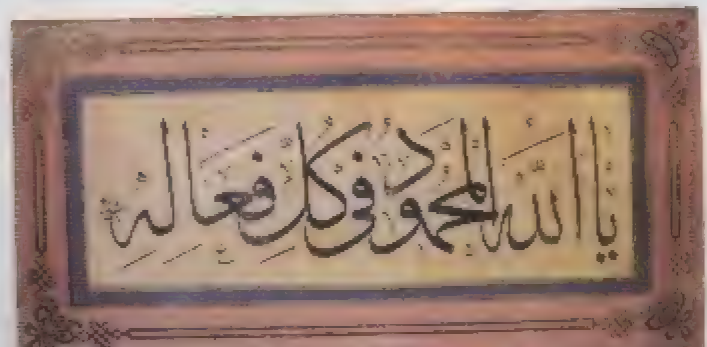 يا الله المحمود في كل فعاله